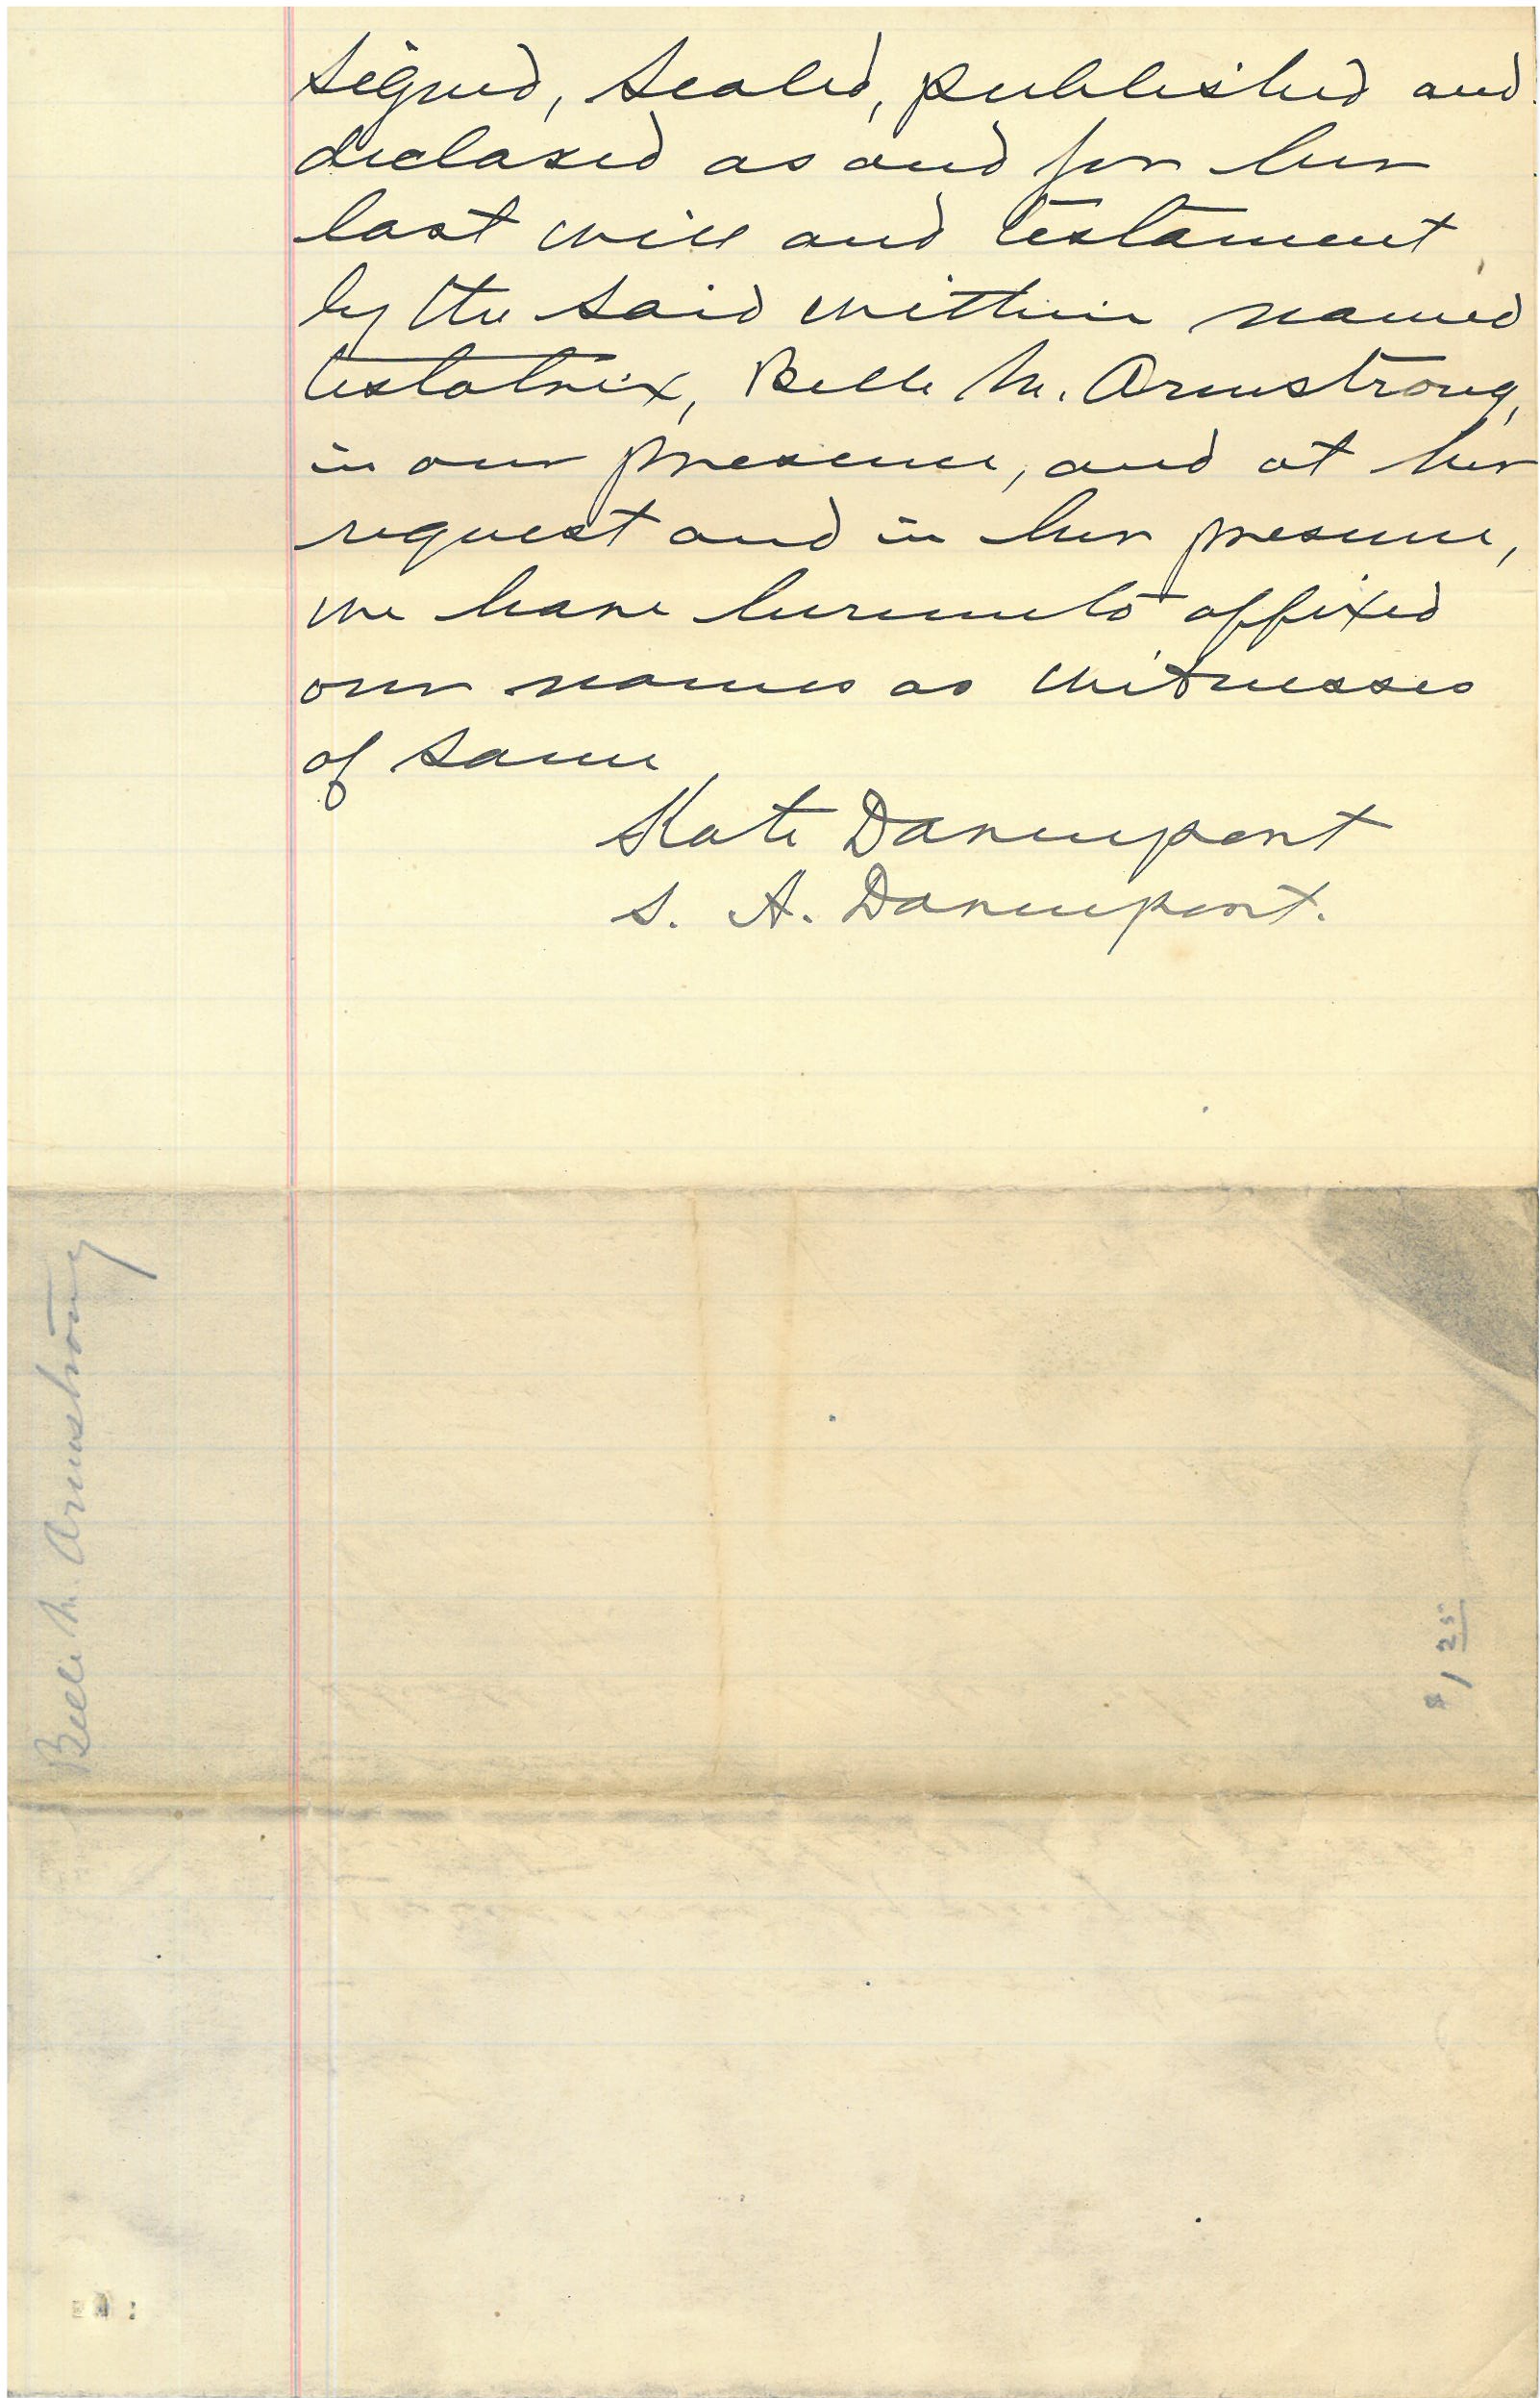 Signed, Sealed, published and
declared as and for her
last will and testament
by the said within named
testatrix, Belle M. Armstrong,
in our presence, and at her
request and in her presence,
we have hereunto affixed
our names as witnesses
of same
Kate Davenport
S. A. Davenport.
Belle M. Armstrong
$1 25